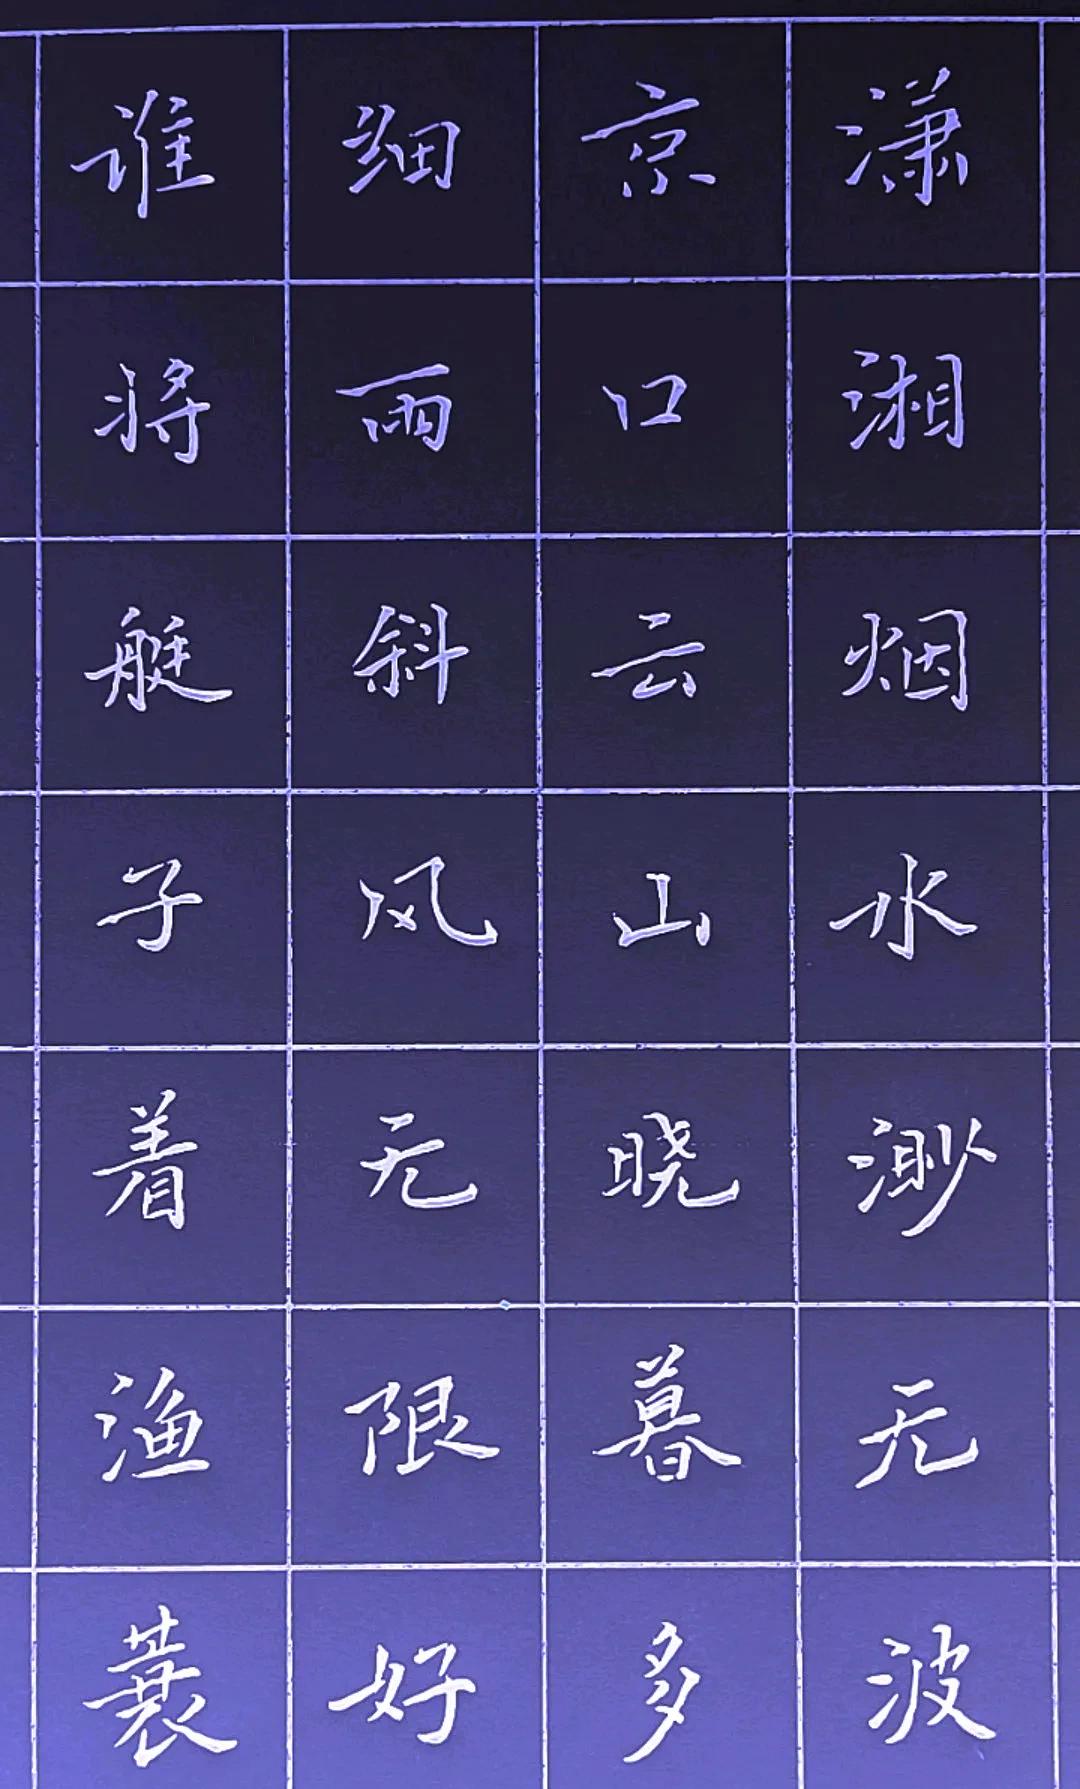 潇湘烟水渺无波
京口云山晓暮多
细雨斜风无限好
谁将艇子着渔蓑